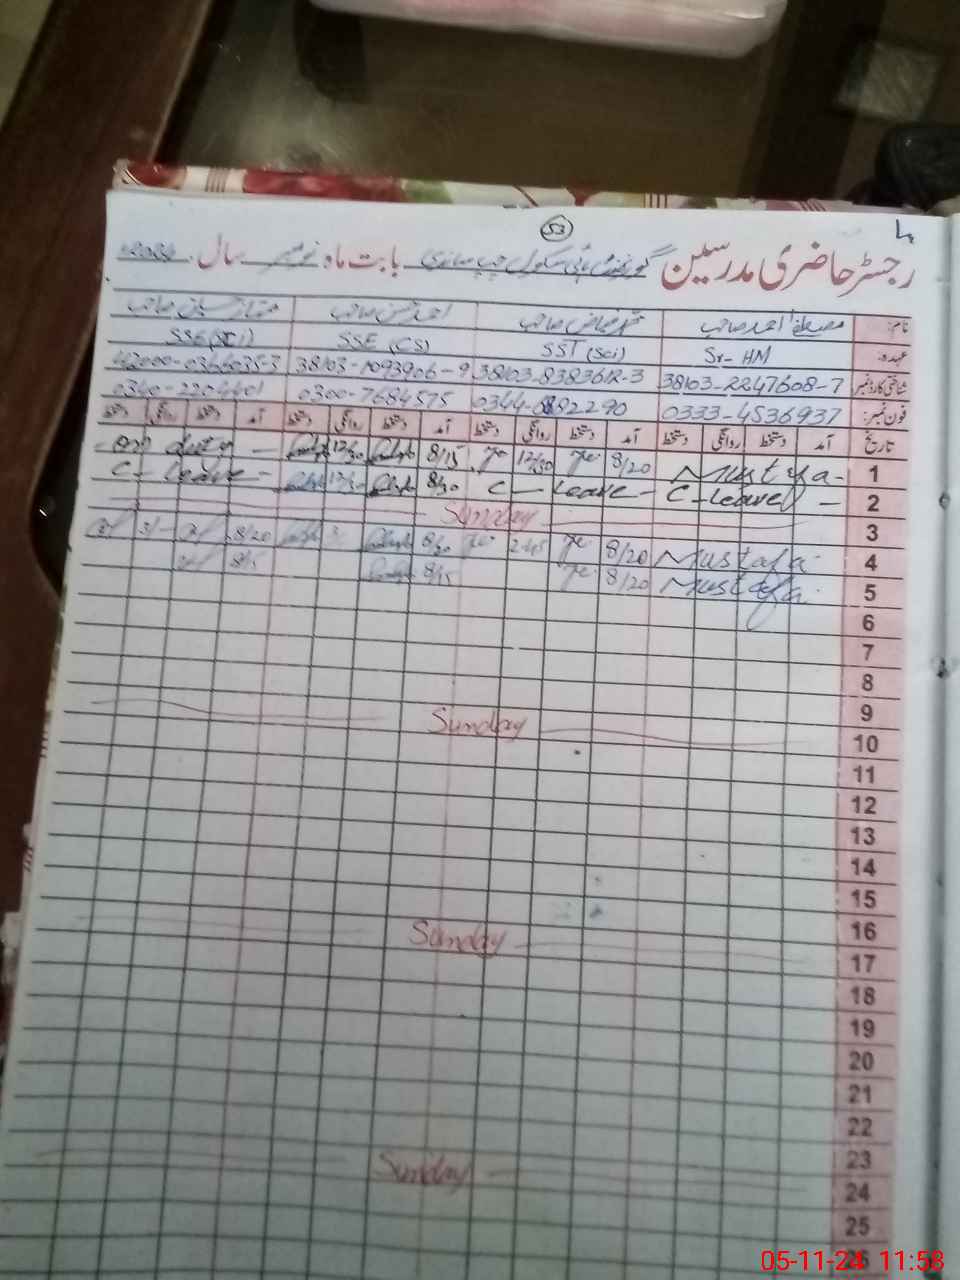 53
رجسٹر حاضری مدرسین گورنمنٹ ہائی سکول بابت ماہ نومبر سال 2024
نام: مصطفیٰ احمد صاحب صاحب احمد حسن صاحب ممتاز حسین صاحب
عہدہ: Sr-HM SST (Sci) SSE (CS) SSE (Sci)
شناختی کارڈ نمبر 38103-2247608-7 38103-8383612-3 38103-1093906-9 42000-0366035-3
فون نمبر: 0333-4536937 0344-6892290 0300-7684575 0340-2204401
تاریخ آمد دستخط روانگی دستخط آمد دستخط روانگی دستخط آمد دستخط روانگی دستخط آمد دستخط روانگی دستخط
1 Mustafa 8/20 12/30 8/15 12/30 on duty
2 C-leave C-leave 8/30 C-leave
3 Sunday
4 Mustafa 8/20 2:45 8/20 3 8/20 3/-
5 Mustafa 8/20 8/15 8/15
6
7
8
9
10 Sunday
11
12
13
14
15
16
17 Sunday
18
19
20
21
22
23
24 Sunday
25
26
05-11-24 11:58